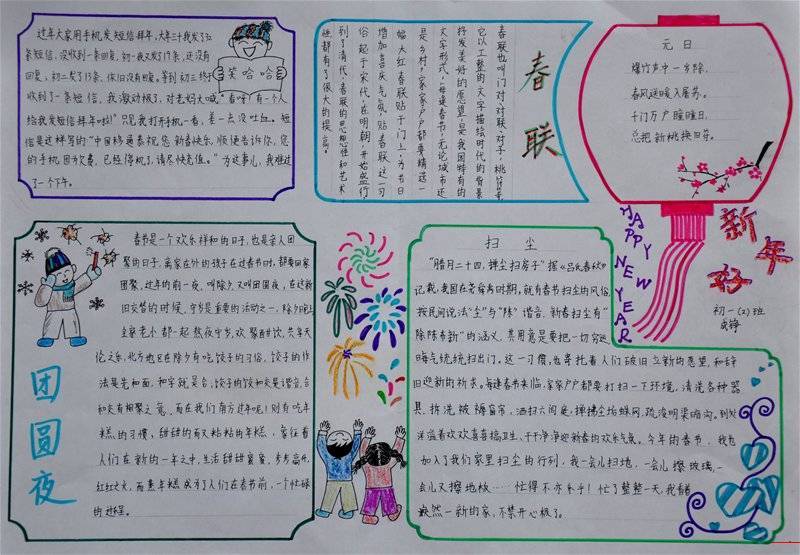 过年大家用手机发短信拜年，大年三十我发了32
条短信，没收到一条回复，初一我又发了19条，还没有
回复，初二发了13条，依旧没有回复。等到初三终于
收到了一条短信，我激动极了，对老妈大喊："看呀！有一个人
给我发短信拜年啦！"只见我打开手机一看，差一点没吐血。短
信是这样写的"中国移通恭祝您新春快乐，顺便告诉你，您
的手机因为欠费，已经停机了，请尽快充值。"为这事儿，我难过
了一个下午。
笑哈哈
春联
春联也叫门对、对联、对子，桃符等，
它以工整的文字描绘时代的背景
抒发美好的愿望，是我国特有的
文字形式，每逢春节，无论城市还
是乡村，家家户户都要精选一
幅大红春联贴于门上，为节日
增加喜庆气氛，贴春联这一习
俗起于宋代，在明朝，开始盛行
到了清代，春联的思想性和艺术
性都有了很大的提高。
元日
爆竹声中一岁除，
春风送暖入屠苏。
千门万户瞳瞳日，
总把新桃换旧符。
HAPPY NEW YEAR
新年好
初一（2）班
团圆夜
春节是一个欢乐祥和的日子，也是亲人团
聚的日子，离家在外的孩子在过春节时，都要回家
团聚，过年的前一夜，叫除夕又叫团圆夜，在这新
旧交替的时候，守岁是重要的活动之一，除夕晚上
全家老小都一起熬夜守岁，欢聚酣饮，共享天
伦之乐，北方地区在除夕有吃饺子的习俗，饺子的作
法是先和面，和字就是合；饺子的饺和交是谐音，合
和交有相聚之意，而在我们南方过年呢！则有吃年
糕的习惯，甜甜的而又粘粘的年糕，象征着
人们在新的一年之中，生活甜甜蜜蜜，步步高升，
红红火火，而蒸年糕成为了人们在春节前，一个忙碌
的进程。
扫尘
"腊月二十四，掸尘扫房子"据《吕氏春秋》
记载，我国在尧舜时期，就有春节扫尘的风俗，
按民间说法"尘"与"陈"谐音，新春扫尘有
"除陈布新"的涵义，其用意是要把一切穷运、
晦气统统扫出门。这一习惯，也寄托着人们破旧立新的愿望，和辞
旧迎新的祈求。每逢春节来临，家家户户都要打扫一下环境，清洗各种器
具，拆洗被褥窗帘，洒扫六闾庭，掸拂尘垢蛛网，疏浚明渠暗沟。到处
洋溢着欢欢喜喜搞卫生、干干净净迎新春的欢乐气氛。今年的春节，我也
加入了我们家里扫尘的行列，我一会儿扫地，一会儿擦玻璃，一
会儿又擦地板……忙得不亦乐乎！忙了整整一天，我看着
焕然一新的家，不禁开心极了。